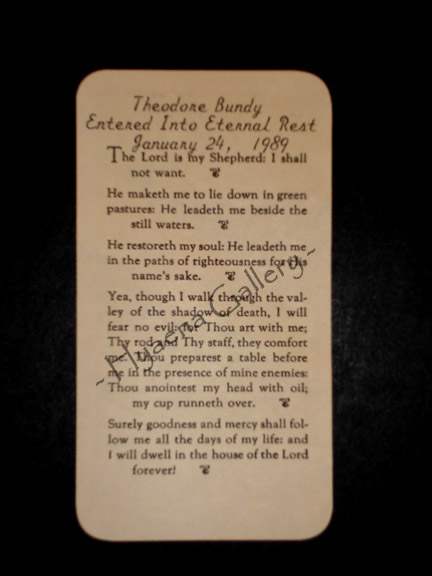 Theodore Bundy
Entered Into Eternal Rest
January 24, 1989
The Lord is my Shepherd: I shall
not want.
He maketh me to lie down in green
pastures: He leadeth me beside the
still waters.
He restoreth my soul: He leadeth me
in the paths of righteousness for this
name's sake.
Yea, though I walk through the val-
ley of the shadow of death, I will
fear no evil: for Thou art with me;
Thy rod and Thy staff, they comfort
me. Thou preparest a table before
me in the presence of mine enemies:
Thou anointest my head with oil;
my cup runneth over.
Surely goodness and mercy shall fol-
low me all the days of my life: and
I will dwell in the house of the Lord
forever!
~Hyaena Gallery~